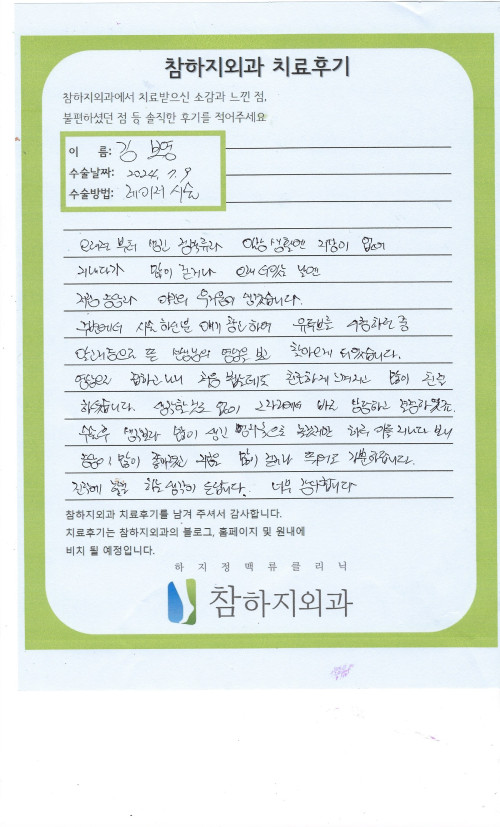 참하지외과 치료후기
참하지외과에서 치료받으신 소감과 느낀 점,
불편하셨던 점 등 솔직한 후기를 적어주세요
이 름: 김 보영
수술날짜: 2024. 7. 9
수술방법: 레이저 시술
오래전 부터 생긴 정맥류라 일상 생활엔 지장이 없어
지내다가 많이 걷거나 오래 서있는 날엔
저림 증상과 약간의 무거움이 있었습니다.
주변에서 시술 하신분 얘기 참고하여 유튜브로 시청하던 중
알고리즘으로 뜬 선생님의 영상을 보고 찾아오게 되었습니다.
영상으로 접하고 나니 처음 뵙는데도 친근하게 느껴지고 많이 친절
하셨습니다. 생각할 것도 없이 그 자리에서 바로 결정하고
수술후 생각보다 많이 생긴 멍자국으로 놀랬지만 하루 이틀 지나다 보니
증상이 많이 좋아졌고 지금은 많이 걷거나 뛰어도 가뿐하답니다.
진작에 할걸 하는 생각이 듭니다. 너무 감사합니다
참하지외과 치료후기를 남겨 주셔서 감사합니다.
치료후기는 참하지외과의 블로그, 홈페이지 및 원내에
비치 될 예정입니다.
하지정맥류클리닉
참하지외과